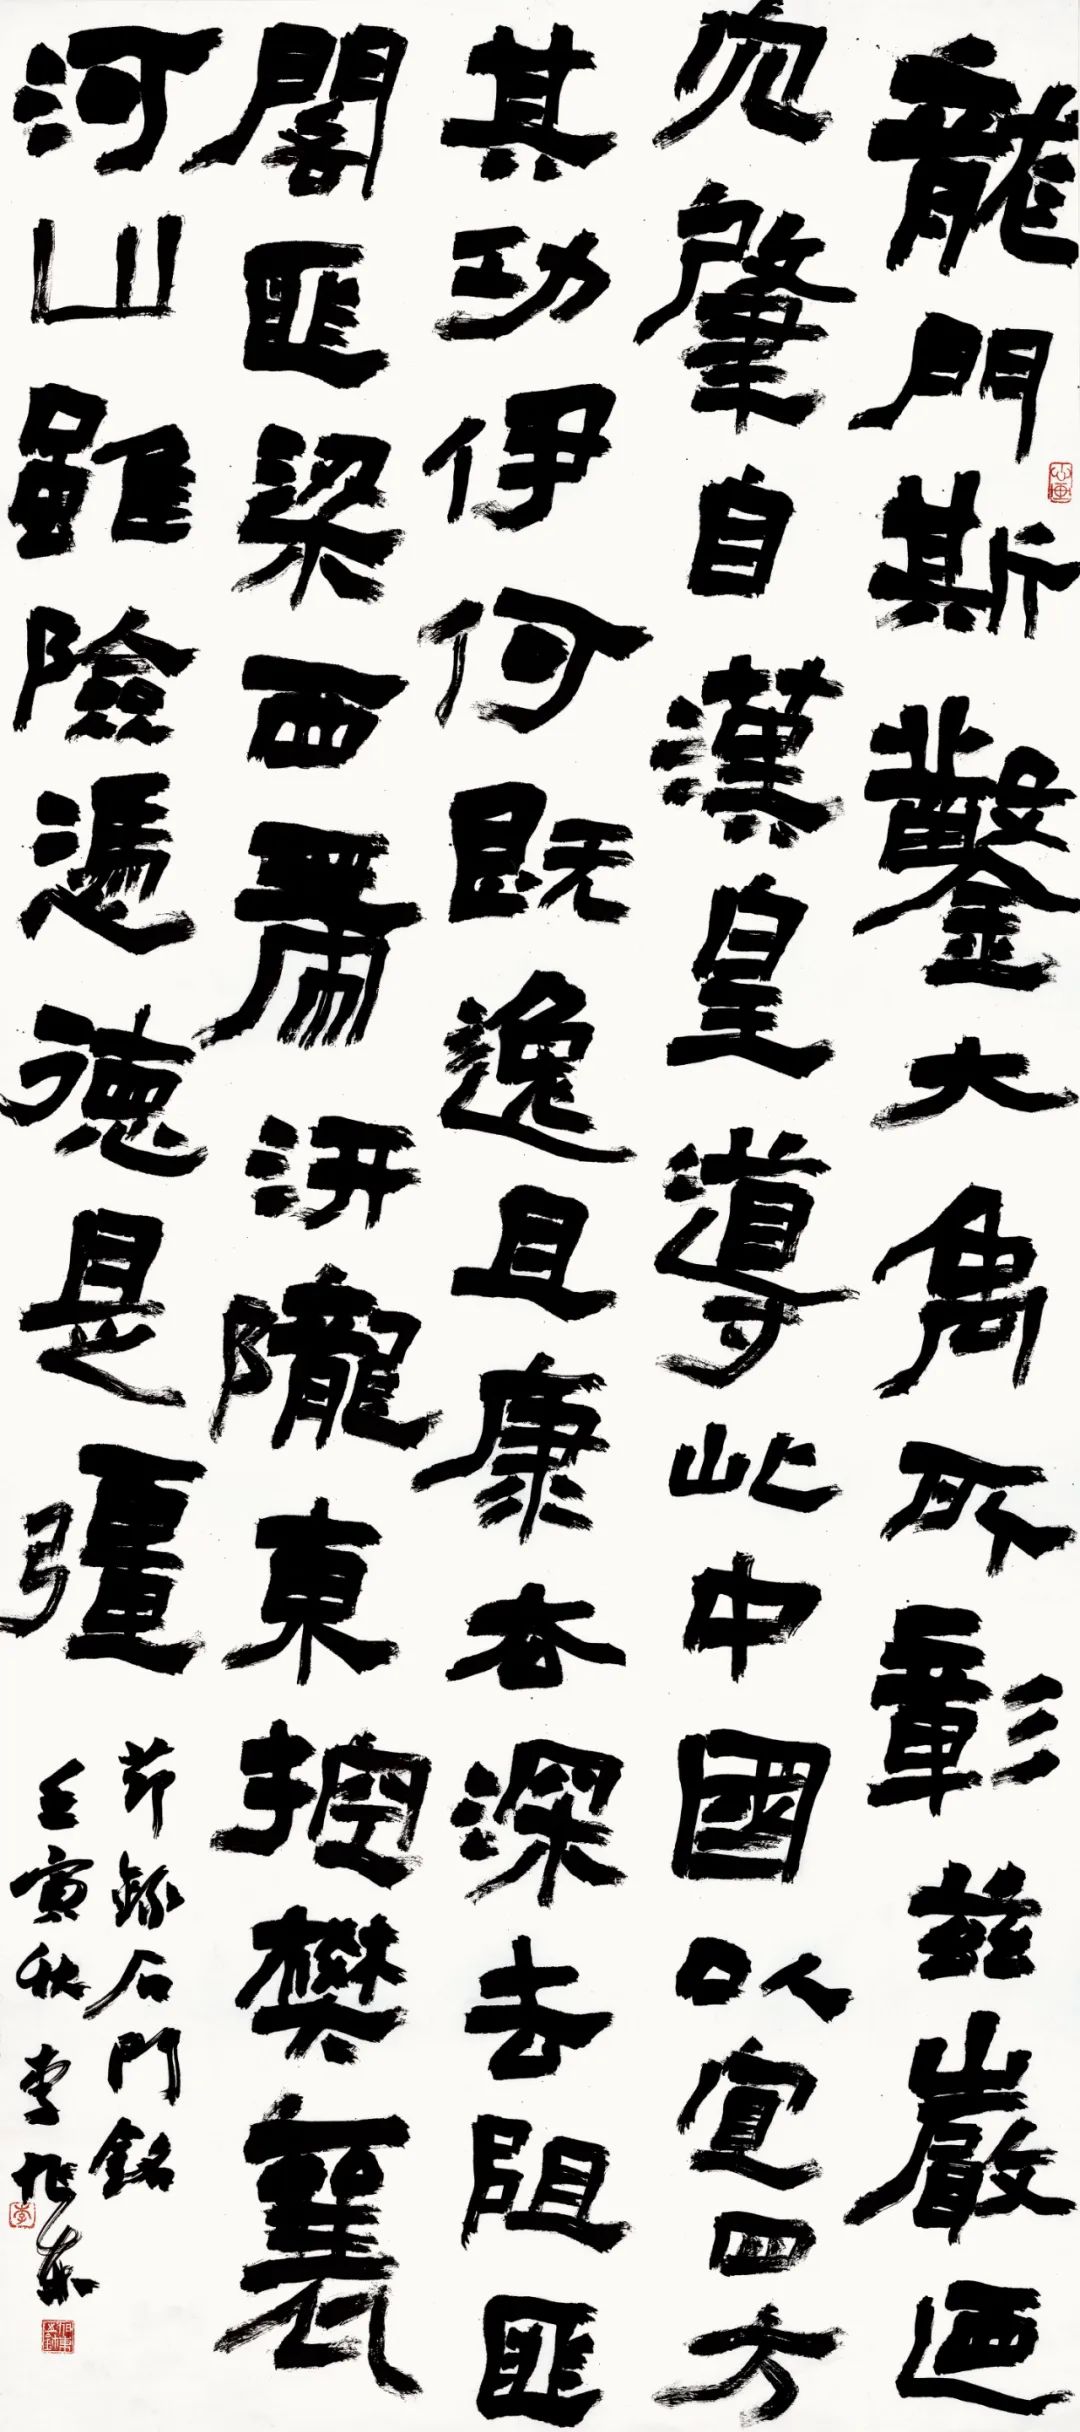 龍門斯鑿大禹所彰茲巖迺
穴肇自漢皇導此中國以宣四方
其功伊何既逸且康去深去阻匪
閣匪梁西帶汧隴東控樊襄
河山雖險憑德是彊
節錄石門銘
壬寅秋李東